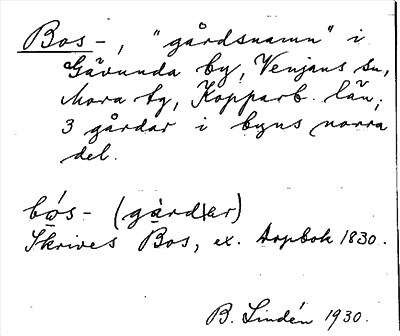 Bos-, "gårdsnamn" i
Gävunda by, Venjans sn,
Mora tg, Kopparb. län;
3 gårdar i byns norra
del.
bós- (gàrdar)
Skrives Bos, ex. Dopbok 1830.
B. Lindén 1930.